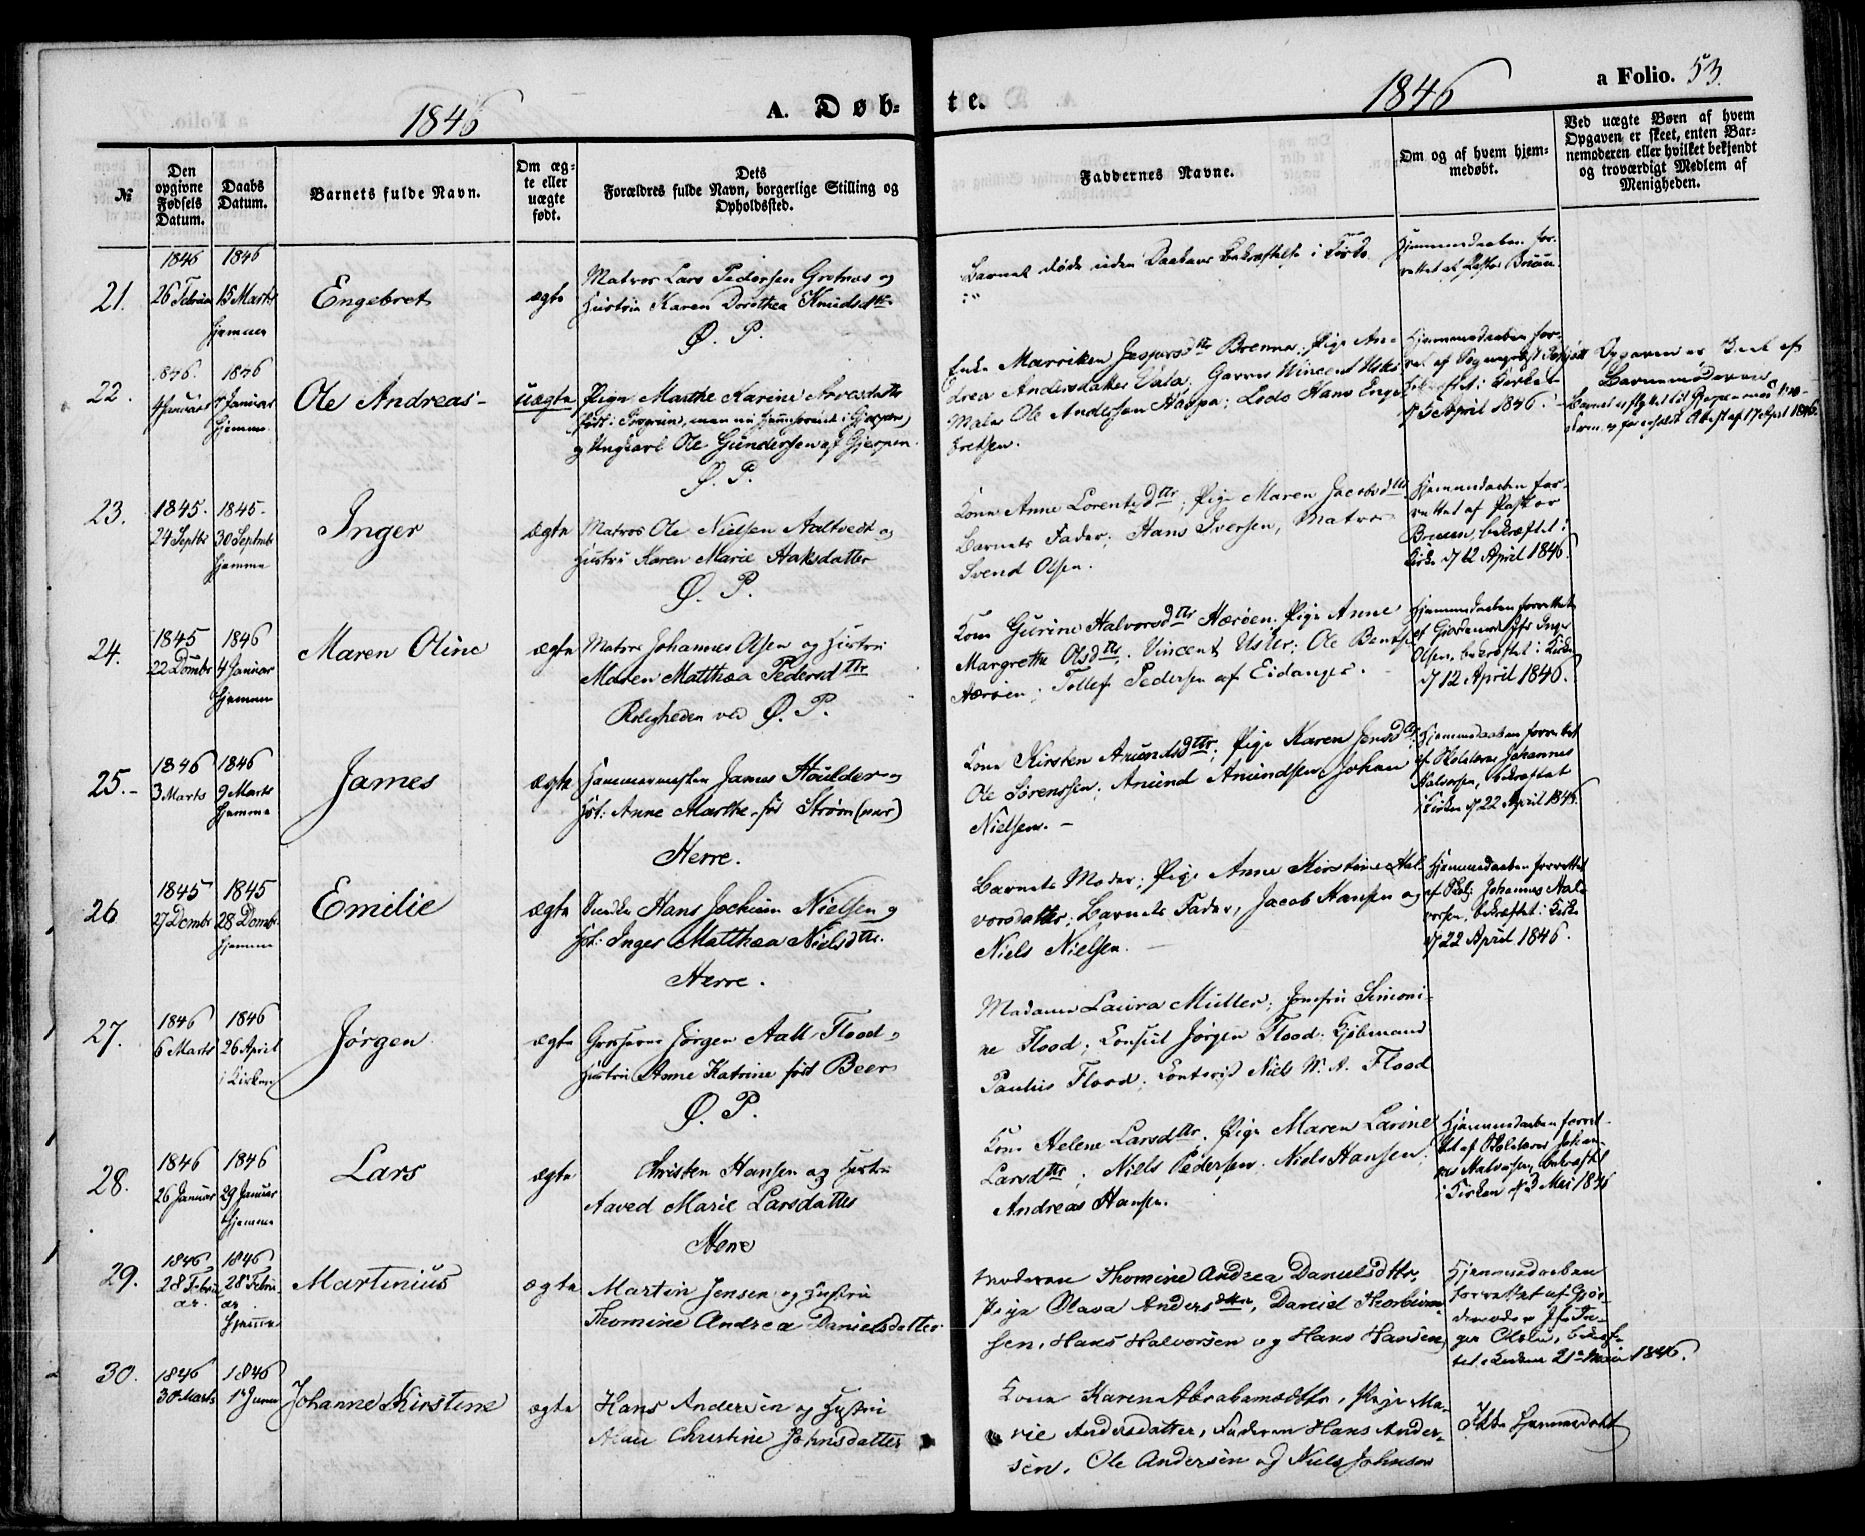 1846
A. Døb-
te.
1846
a Folio. 53.
№
Den opgivne Fødsels Datum.
Daabs Datum.
Barnets fulde Navn.
Om ægte eller uægte født.
Dets Forældres fulde Navn, borgerlige Stilling og Opholdssted.
Faddernes Navne.
Om og af hvem hjemmedøbt.
Ved uægte Børn af hvem Opgaven er skeet, enten Barnemoderen eller hvilket bekjendt og troværdigt Medlem af Menigheden.
1846 1846
21. 26 Februar 15 Marts
hjemme
Engebret
ægte
Matros Lars Pedersen Grotnes og
Hustru Karen Dorothea Knudsdtr
Ø. P.
Barnet døde uden Daabens Bekræftelse i Kirken
Hjemmedaaben for-
rettet af Pastor Bruun
1846. 1846
22. 4 Januar 4 Januar
hjemme
Ole Andreas
uægte
Pige Marthe Karine Arvesdatter
og Ungkarl Ole Gundersen af Gjerpen.
Ø. P.
Enke Marriken Jespersdtr Brenner; Pige An-
drea Andersdatter Vala; Garver Vincent Usler
Maler Ole Andersen Haspa; Lods Hans Enge-
bretsen.
Hjemmedaaben for-
bekræftet i Kirken
d 5 April 1846.
Opgaven er skeet af
Barnemoderen
23. 1845. 1845.
24 Septbr 30 September
hjemme
Inger
ægte
Matros Ole Nielsen Aaltvedt og
Hustru Karen Marie Aaksdatter
Ø. P.
Kone Anne Lorentsdtr; Pige Maren Jacobsdtr
Barnets Fader; Hans Iversen, Matros
Svend Olsen.
Hjemmedaaben for-
rettet af Pastor
Bruun, bekræftet i
Kirken d 12 April 1846.
24. 1845 1846
22 Dcmbr 4 Januar
hjemme
Maren Oline
ægte
Matros Johannes Olsen og Hustru
Maren Matthea Pedersdtr
Roligheden ved Ø. P.
Kone Gurine Halvorsdtr Hærøen; Pige Anne
Margrethe Olsdtr. Vincent Usler; Ole Bentsen
Hærøen; Tollef Pedersen af Eidanger.
Hjemmedaaben forrettet
af Gjordemoder Inger
Olsen, bekræftet i Kirken
d 12 April 1846.
25. 1846 1846
3 Marts 9 Marts
hjemme
James
ægte
Hammermester James Houlder og
Hst: Anne Marthe, fød Strøm
Herre.
Kone Kirsten Amundsdtr; Pige Karen Jensdtr
Ole Sørensen; Amund Amundsen; Johan
Nielsen.
Hjemmedaaben forrettet
af Skolelærer Johannes
Halvorsen, bekræftet
i Kirken d 22 April 1846.
26 1845 1845
27 Dcmbr 28 Dcmbr
hjemme
Emilie
ægte
Hans Jochum Nielsen og
Hst: Inger Matthea Nielsdtr.
Herre.
Barnets Moder; Pige Anne Kirstine Hal-
vorsdatter; Barnets Fader, Jacob Hansen og
Niels Nielsen.
Hjemmedaaben forrettet
af Skl: Johannes Hal-
vorsen, bekræftet i Kirken
d 22 April 1846.
27. 1846 1846
6 Marts 26 April
i Kirken
Jørgen
ægte
Grosserer Jørgen Aall Flood og
Hustru Anne Katrine født Beer
Ø. P.
Madame Laura Müller; Jomfru Simoni-
ne Flood; Consul Jørgen Flood; Kjøbmand
Paulus Flood; Contorist Niels W. A. Flood
28. 1846 1846
26 Januar 29 Januar
hjemme
Lars
ægte
Christen Hansen og Hustru
Aaved Marie Larsdatter
Herre
Kone Helene Larsdtr. Pige Maren Larine
Larsdtr; Niels Pedersen. Niels Hansen;
Andreas Hansen.
Hjemmedaaben forret-
tet af Skolelærer Johan-
nes Halvorsen, bekræftet
i Kirken d 3 Mai 1846
29. 1846 1846
28 Febru 28 Febru
ar. ar.
hjemme
Martinius
ægte
Martin Jensen og Hustru
Thomine Andrea Danielsdatter
Moderen Thomine Andrea Danielsdttr,
Pige Olava Andersdttr, Daniel Thorbjørn-
sen, Hans Halvorsen og Hans Hansen,
Hjemmedaaben
forrettet af Gjor-
demoder In-
ger Olsen, bekræf-
tet i Kirken 21de Mai 1846.
30. 1846 1846
30 Marts 1 Juni
Johanne Kirstine
ægte
Hans Andersen og Hustru
Anne Christine Johnsdatter
Kone Karen Abrahamsdttr, Pige Ma-
rie Andersdatter, Faderen Hans Ander-
sen, Ole Andersen og Niels Johnsen
Ikke hjemmedøbt